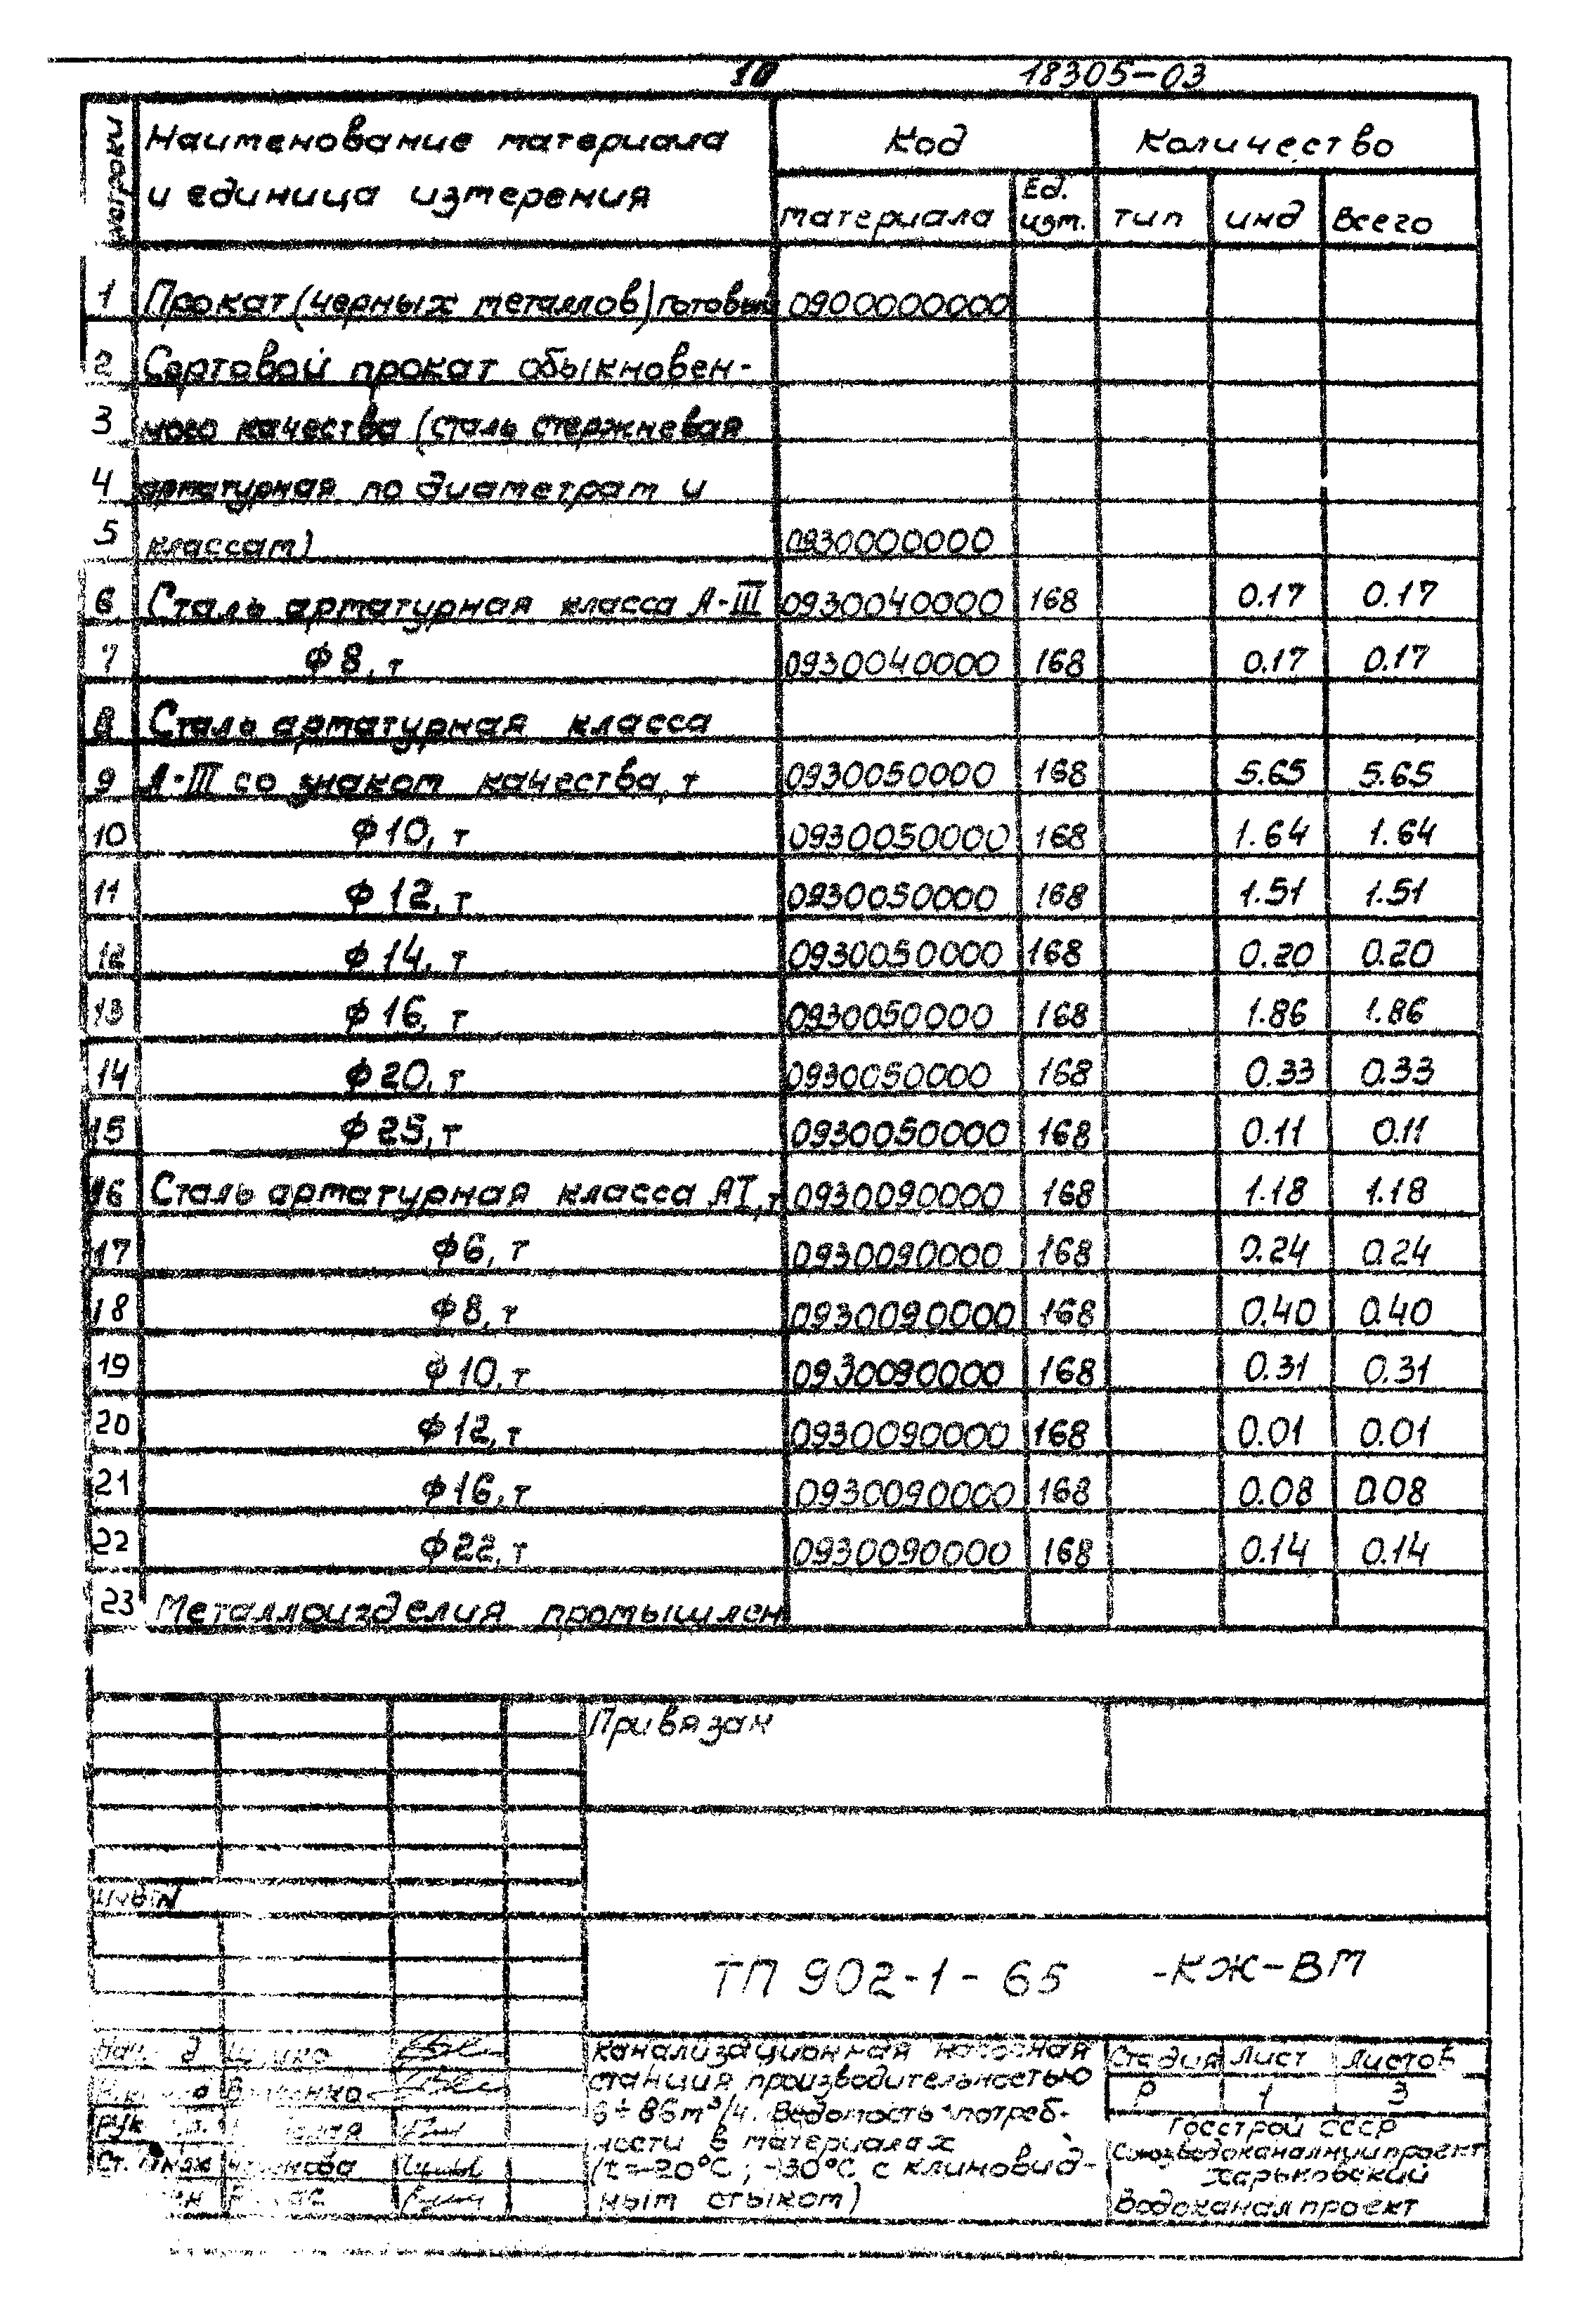 10 18305-03
№ строки Наименование материала и единица измерения Код Количество
материала Ед. изм. тип инд Всего
1 Прокат (черных металлов) готовый 0900000000
2 Сортовой прокат обыкновен-
3 ного качества (сталь стержневая
4 арматурная по диаметрам и
5 классам) 0930000000
6 Сталь арматурная класса А-III 0930040000 168 0.17 0.17
7 Ф8, т 0930040000 168 0.17 0.17
8 Сталь арматурная класса
9 А-III со знаком качества, т 0930050000 168 5.65 5.65
10 Ф10, т 0930050000 168 1.64 1.64
11 Ф12, т 0930050000 168 1.51 1.51
12 Ф14, т 0930050000 168 0.20 0.20
13 Ф16, т 0930050000 168 1.86 1.86
14 Ф20, т 0930050000 168 0.33 0.33
15 Ф25, т 0930050000 168 0.11 0.11
16 Сталь арматурная класса АI, т 0930090000 168 1.18 1.18
17 Ф6, т 0930090000 168 0.24 0.24
18 Ф8, т 0930090000 168 0.40 0.40
19 Ф10, т 0930090000 168 0.31 0.31
20 Ф12, т 0930090000 168 0.01 0.01
21 Ф16, т 0930090000 168 0.08 0.08
22 Ф22, т 0930090000 168 0.14 0.14
23 Металлоизделия промышлен
Привязан
Инв №
ТП 902-1-65 -КЖ-ВМ
Канализационная насосная
станция производительностью
6÷86м³/ч. Ведомость потреб-
ности в материалах
(t=-20°C; -30°C с клиновид-
ным стыком)
Стадия Лист Листов
Р 1 3
Госстрой СССР
Союзводоканалниипроект
Харьковский
Водоканалпроект
Рук
Ст. инж